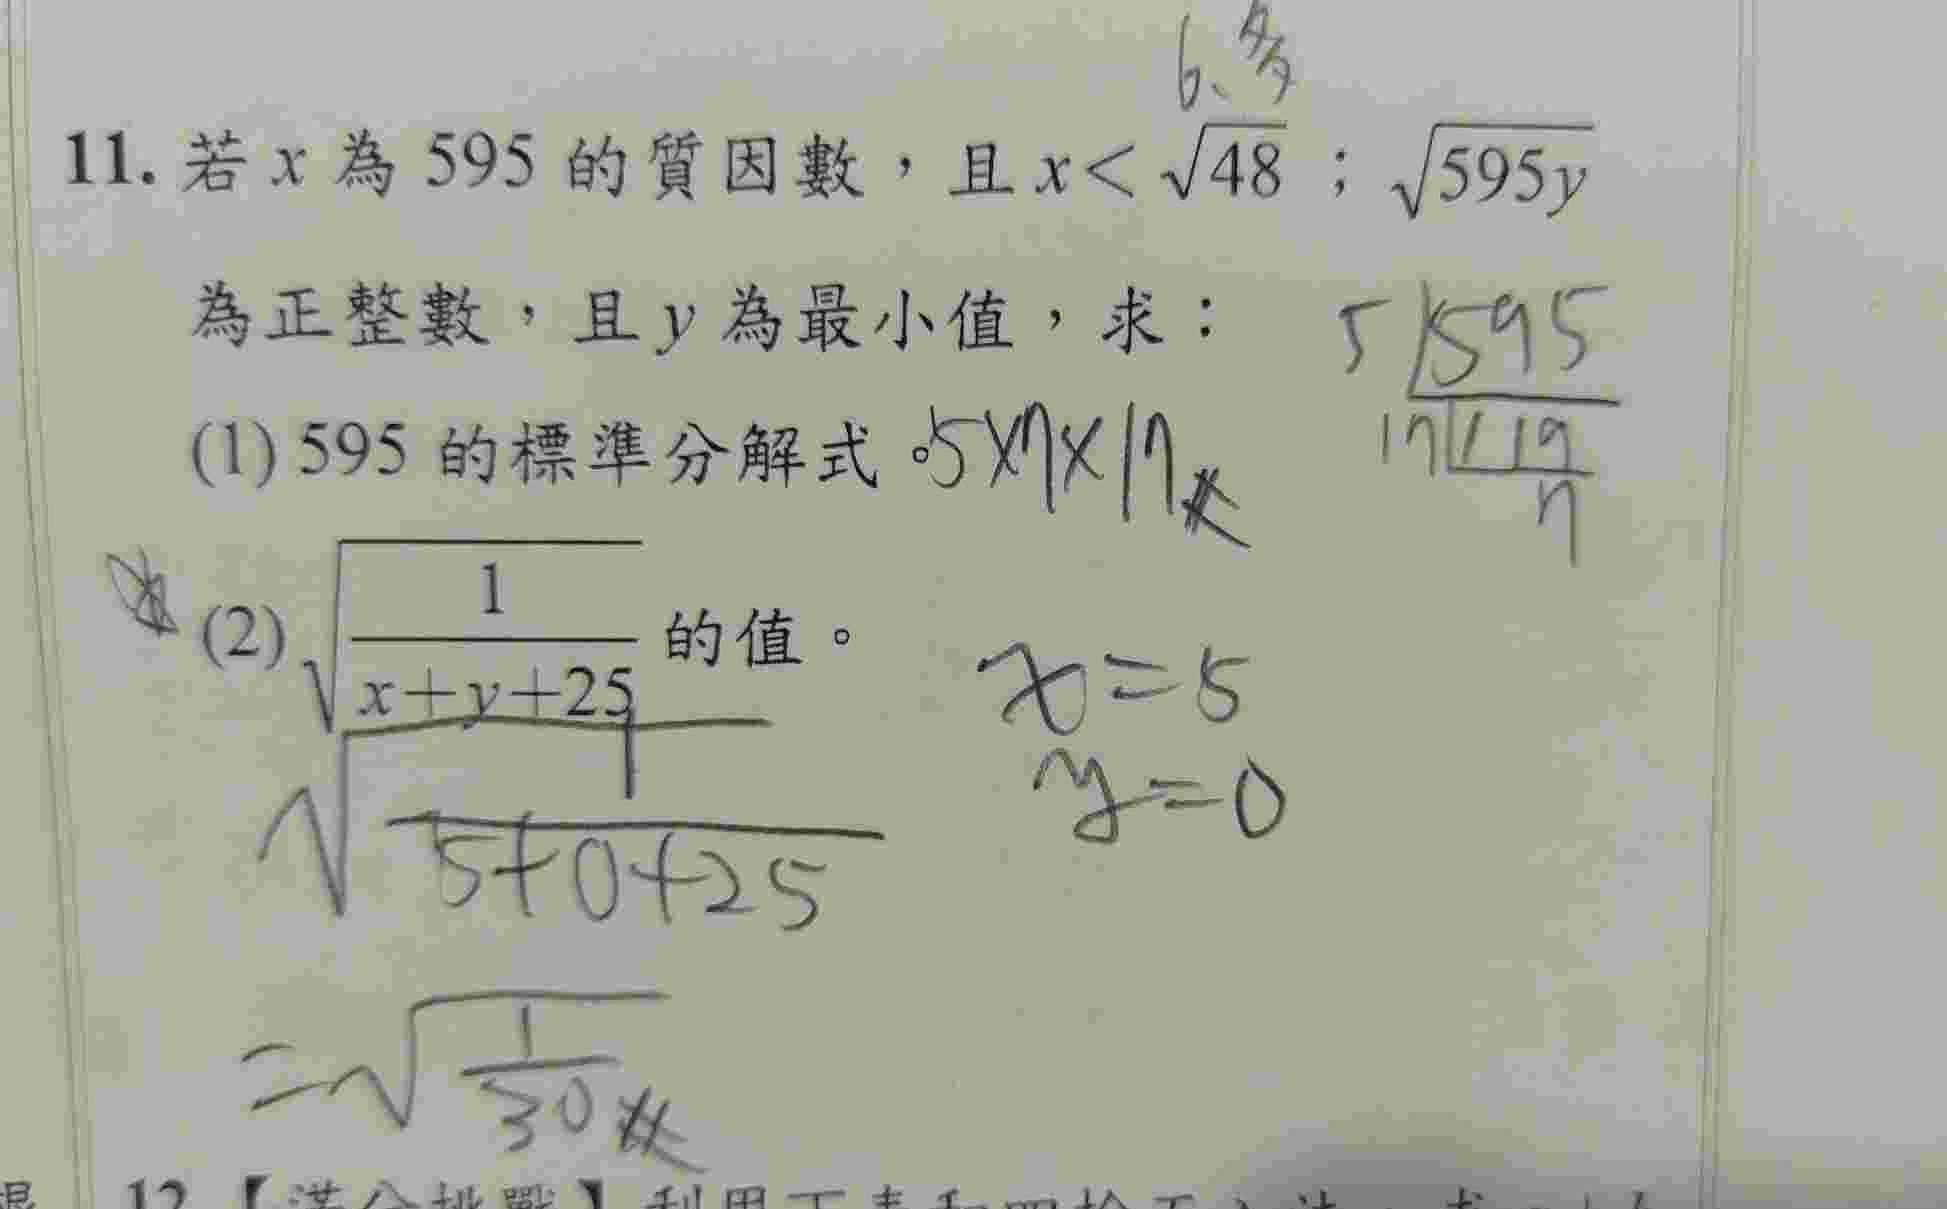 6.多
11. 若 x 為 595 的質因數，且 x < √48；√595y
為正整數，且 y 為最小值，求：
5 595
17 119
7
(1) 595 的標準分解式。5×7×17
(2) √(1/(x+y+25)) 的值。
x=5
y=0
√(1/(5+0+25))
=√(1/30)
12.【滿分挑戰】利用